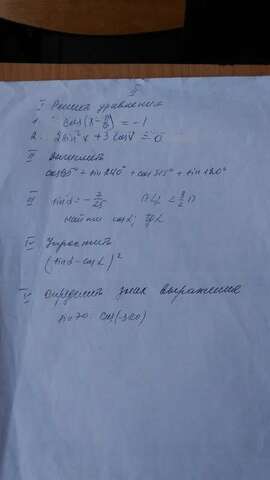 I Решить уравнения
1. cos(x-π/6) = -1
2. 2sin²x + 3cosx = 0
II Вычислить
+ sin240° + cos315° + sin120°
III sinα = -7/25 π<α<3/2π
найти cosα; tgα
IV Упростить
(sinα-cosα)²
V Определить знак выражения
sin70· cos(-320)